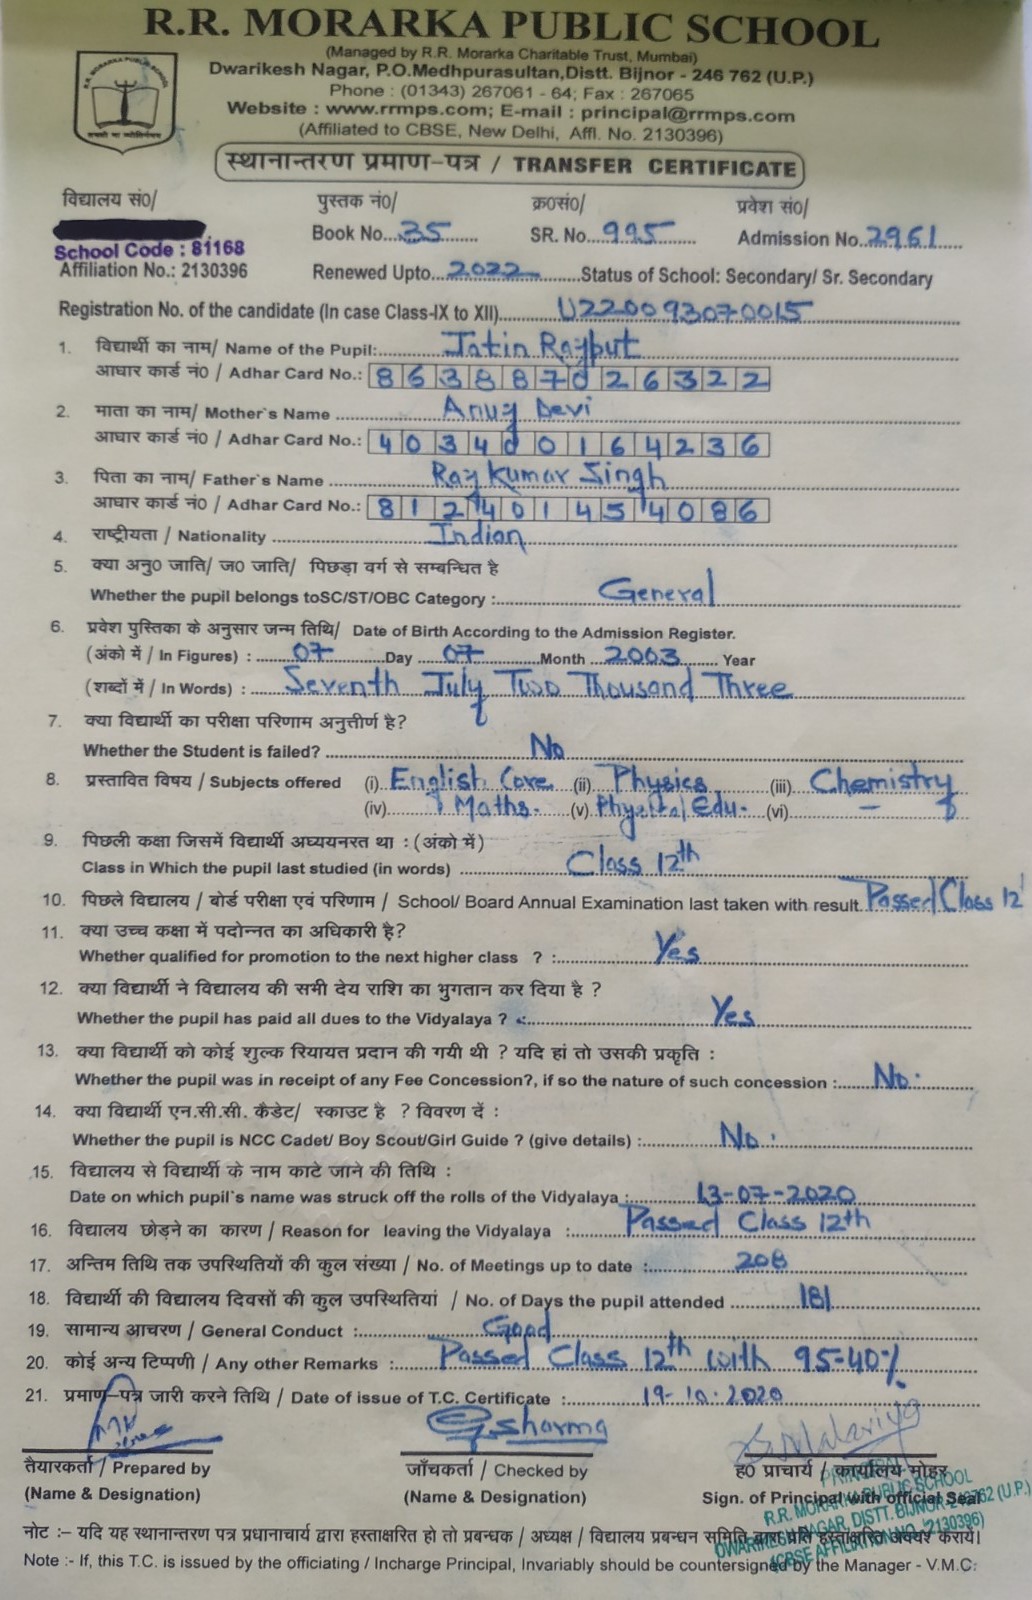 R.R. MORARKA PUBLIC SCHOOL
(Managed by R.R. Morarka Charitable Trust, Mumbai)
Dwarikesh Nagar, P.O.Medhpurasultan,Distt. Bijnor - 246 762 (U.P.)
Phone : (01343) 267061 - 64; Fax : 267065
Website : www.rrmps.com; E-mail : principal@rrmps.com
(Affiliated to CBSE, New Delhi, Affl. No. 2130396)
R.R. MORARKA PUBLIC SCHOOL
स्थानान्तरण प्रमाण-पत्र / TRANSFER CERTIFICATE
विद्यालय सं0/ पुस्तक नं0/ क्र0सं0/ प्रवेश सं0/
Book No. 35 SR. No. 995 Admission No. 2961
School Code : 81168
Affiliation No.: 2130396 Renewed Upto 2022 Status of School: Secondary/ Sr. Secondary
Registration No. of the candidate (In case Class-IX to XII) U220093070015
1. विद्यार्थी का नाम/ Name of the Pupil: Jatin Rajput
आधार कार्ड नं0 / Adhar Card No.: 863887026322
2. माता का नाम/ Mother`s Name Anuj Devi
आधार कार्ड नं0 / Adhar Card No.: 40340164236
3. पिता का नाम/ Father`s Name Raj Kumar Singh
आधार कार्ड नं0 / Adhar Card No.: 812401454086
4. राष्ट्रीयता / Nationality Indian
5. क्या अनु0 जाति/ ज0 जाति/ पिछड़ा वर्ग से सम्बन्धित है
Whether the pupil belongs toSC/ST/OBC Category : General
6. प्रवेश पुस्तिका के अनुसार जन्म तिथि/ Date of Birth According to the Admission Register.
(अंको में / In Figures) : 07 Day 07 Month 2003 Year
(शब्दों में / In Words) : Seventh July Two Thousand Three
7. क्या विद्यार्थी का परीक्षा परिणाम अनुत्तीर्ण है?
Whether the Student is failed? No
8. प्रस्तावित विषय / Subjects offered (i) English Core (ii) Physics (iii) Chemistry
(iv) Maths. (v) Physical Edu. (vi) –
9. पिछली कक्षा जिसमें विद्यार्थी अध्ययनरत था : (अंको में)
Class in Which the pupil last studied (in words) Class 12th
10. पिछले विद्यालय / बोर्ड परीक्षा एवं परिणाम / School/ Board Annual Examination last taken with result. Passed Class 12
11. क्या उच्च कक्षा में पदोन्नत का अधिकारी है?
Whether qualified for promotion to the next higher class ? : Yes
12. क्या विद्यार्थी ने विद्यालय की सभी देय राशि का भुगतान कर दिया है ?
Whether the pupil has paid all dues to the Vidyalaya ? Yes
13. क्या विद्यार्थी को कोई शुल्क रियायत प्रदान की गयी थी ? यदि हां तो उसकी प्रकृति :
Whether the pupil was in receipt of any Fee Concession?, if so the nature of such concession : No.
14. क्या विद्यार्थी एन.सी.सी. कैडेट/ स्काउट है ? विवरण दें :
Whether the pupil is NCC Cadet/ Boy Scout/Girl Guide ? (give details) : No.
15. विद्यालय से विद्यार्थी के नाम काटे जाने की तिथि :
Date on which pupil`s name was struck off the rolls of the Vidyalaya : 13-07-2020
16. विद्यालय छोड़ने का कारण / Reason for leaving the Vidyalaya : Passed Class 12th
17. अन्तिम तिथि तक उपस्थितियों की कुल संख्या / No. of Meetings up to date : 208
18. विद्यार्थी की विद्यालय दिवसों की कुल उपस्थितियां / No. of Days the pupil attended 181
19. सामान्य आचरण / General Conduct : Good
20. कोई अन्य टिप्पणी / Any other Remarks : Passed Class 12th with 95.40%
21. प्रमाण-पत्र जारी करने तिथि / Date of issue of T.C. Certificate : 19-10-2020
G. Sharma
तैयारकर्ता / Prepared by जाँचकर्ता / Checked by ह0 प्राचार्य / कार्यालय मोहर
(Name & Designation) (Name & Designation) Sign. of Principal with official Seal
PRINCIPAL
R.R. MORARKA PUBLIC SCHOOL
DWARIKESH NAGAR, DISTT. BIJNOR-246762 (U.P.)
(CBSE AFFILIATION NO. 2130396)
नोट :– यदि यह स्थानान्तरण पत्र प्रधानाचार्य द्वारा हस्ताक्षरित हो तो प्रबन्धक / अध्यक्ष / विद्यालय प्रबन्धन समिति द्वारा प्रति हस्ताक्षरित अवश्य करायें।
Note :- If, this T.C. is issued by the officiating / Incharge Principal, Invariably should be countersigned by the Manager - V.M.C.